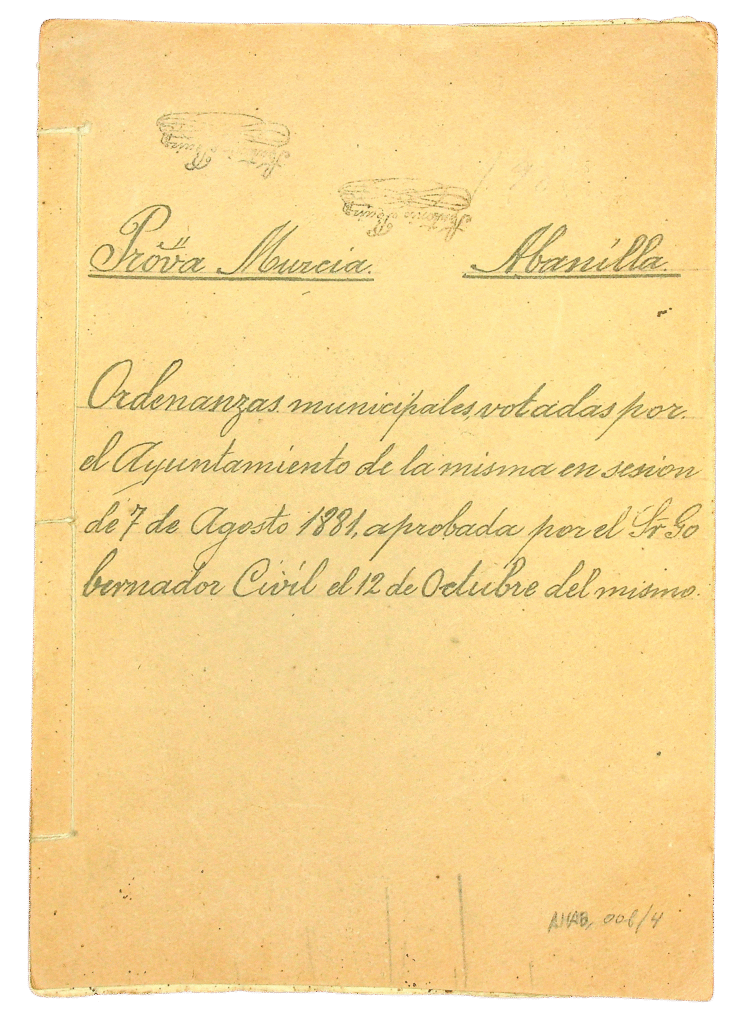 Prov.ª Murcia. Abanilla.
Ordenanzas municipales, votadas por
el Ayuntamiento de la misma en sesion
de 7 de Agosto 1881, aprobada por el Sr Go
bernador Civil el 12 de Octubre del mismo.
AHAB, 006/4